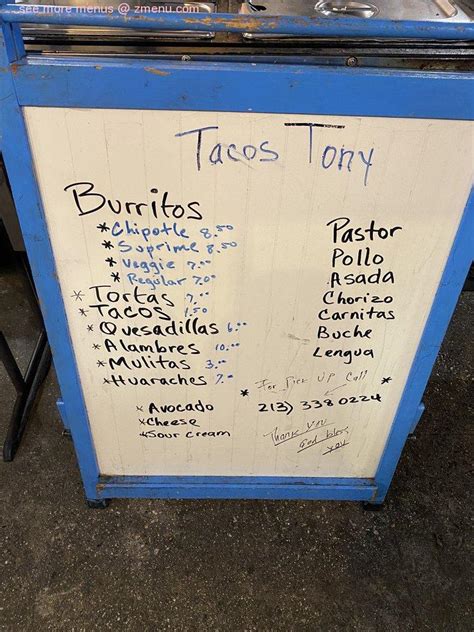 see more menus @ zmenu.com
Tacos Tony
Burritos
*Chipotle 8.50
*Suprime 8.50
*Veggie 7.00
*Regular 7.00
*Tortas 7.00
*Tacos 1.50
*Quesadillas 6.00
*Alambres 10.00
*Mulitas 3.00
*Huaraches 7.00
*Avocado
*Cheese
*Sour cream
Pastor
Pollo
Asada
Chorizo
Carnitas
Buche
Lengua
* For Pick Up Call *
213) 338 0224
Thank you
God bless
you